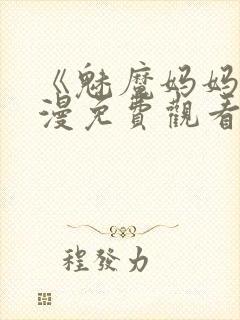 《魅魔妈妈
漫免費觀看
程發力